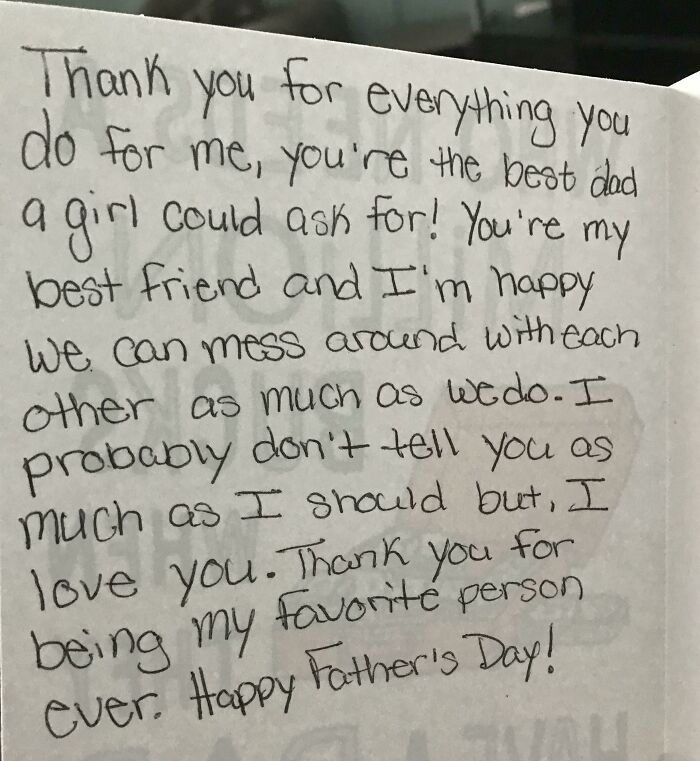 Thank you for everything you
do for me, you're the best dad
a girl could ask for! You're my
best friend and I'm happy
we can mess around with each
other as much as we do. I
probably don't tell you as
much as I should but, I
love you. Thank you for
being my favorite person
ever. Happy Father's Day!